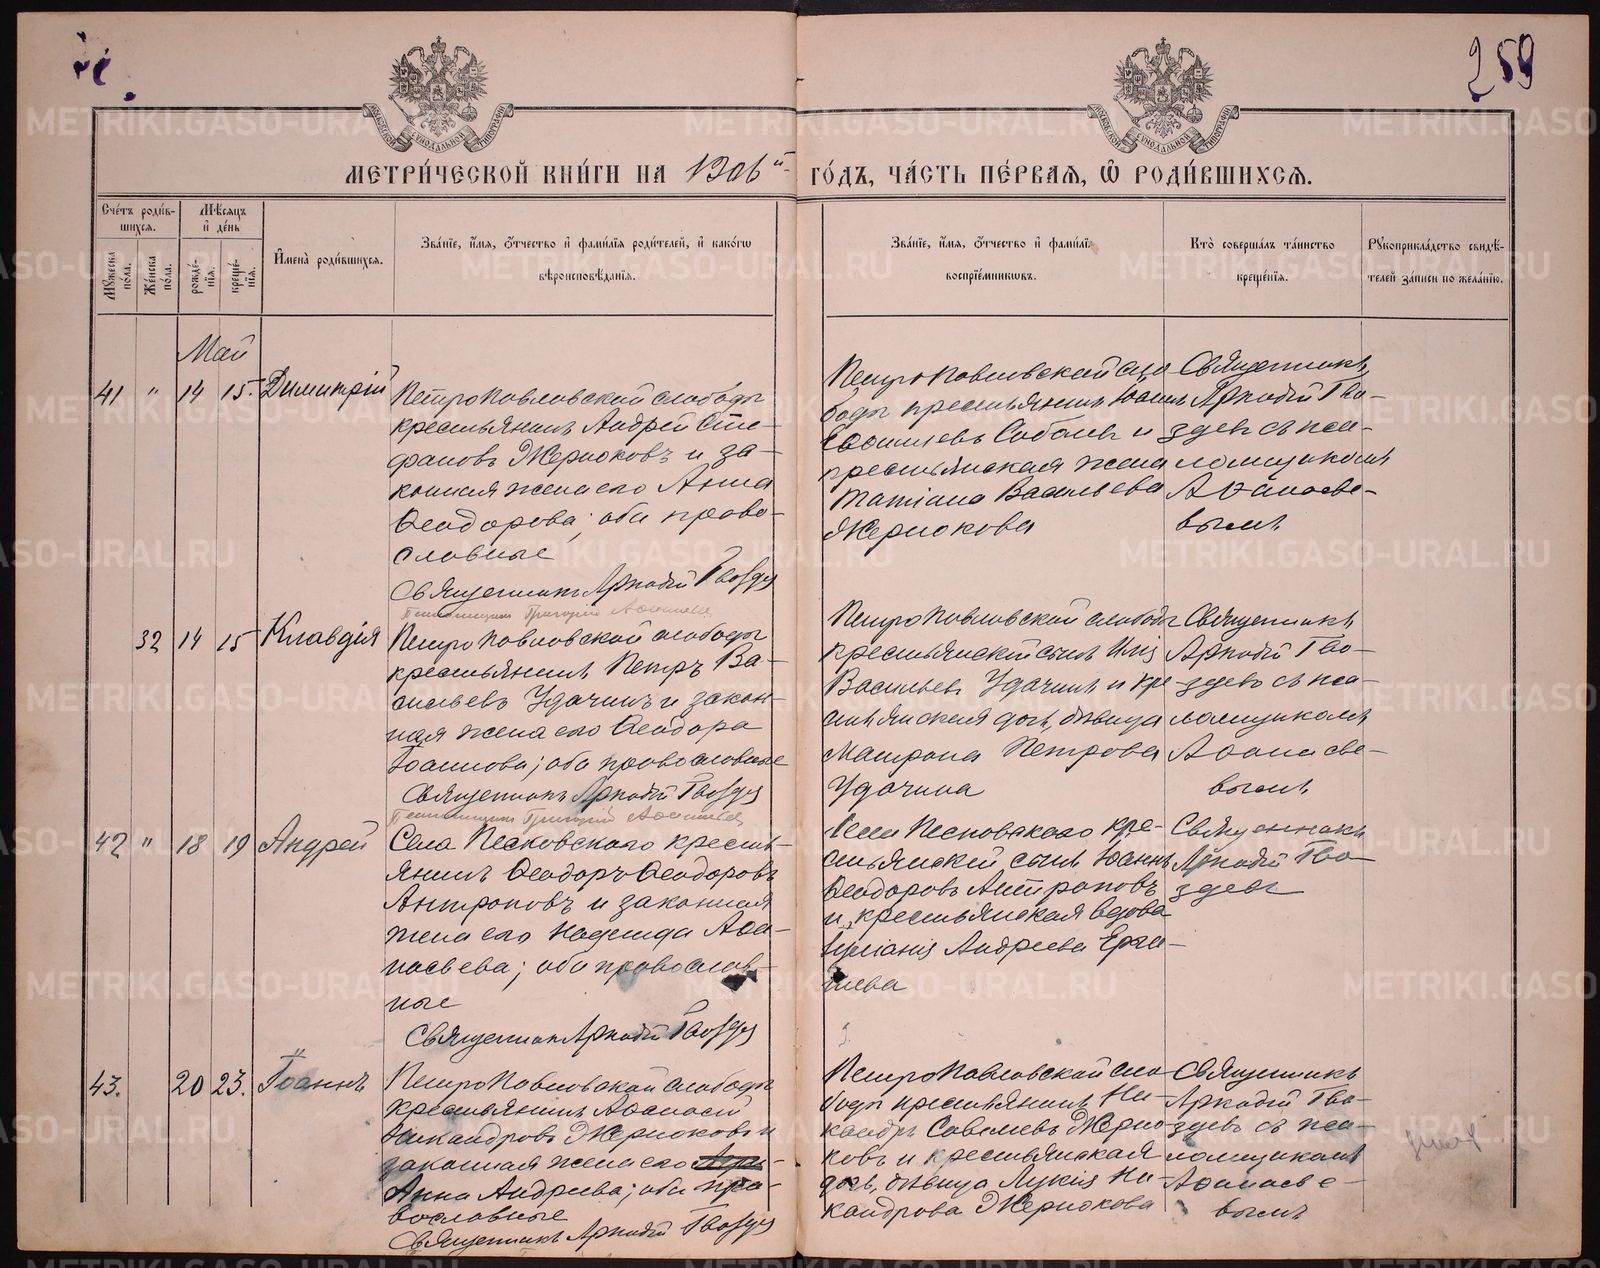 259
МОСКОВСКОЙ СѴНОДАЛЬНОЙ ТИПОГРАФІИ
МОСКОВСКОЙ СѴНОДАЛЬНОЙ ТИПОГРАФІИ
МЕТРИ́ЧЕСКОЙ КНИ́ГИ НА 1906й ГО́ДЪ, ЧА́СТЬ ПЕ́РВАЯ, Ѡ РОДИ́ВШИХСЯ.
Сче́тъ роди́в-
шихся.
Мужеска по́ла.
Же́нска по́ла.
Мѣ́сяцъ
и де́нь
рожде́-
нія.
креще́-
нія.
И́мена роди́вшихся.
Зва́ніе, и́мя, о́тчество и фами́лія роди́телей, и како́гѡ
вѣроисповѣ́данія.
Зва́ніе, и́мя, о́тчество и фами́лія
воспріе́мниковъ.
Кто̀ соверша́лъ та́инство
креще́нія.
Рукоприкла́дство свидѣ́-
телей за́писи по жела́нію.
Май
41 " 14 15. Димитрій
Петропавловской слободы
крестьянинъ Андрей Сте-
фановъ Жерноковъ и за-
конная жена его Анна
Ѳеодорова; оба право-
славные
Священникъ Аркадій Гвоздевъ
Псаломщикъ Григорій Аѳанасьевъ
Петропавловской сло
боды крестьянинъ Іоаннъ
и
крестьянская жена
Татіана Васильева
Жернокова
Священникъ
Аркадій Гво-
здевъ съ пса-
ломщикомъ
Аѳанасье-
вымъ
32 14 15 Клавдія
Петропавловской слободы
крестьянинъ Петръ Ва-
сильевъ Удачинъ и закон-
ная жена его Ѳеодора
Іоаннова; оба православные
Священникъ Аркадій Гвоздевъ
Псаломщикъ Григорій Аѳанасьевъ
Петропавловской слободы
крестьянскій сынъ Илія
Васильевъ Удачинъ и кре-
стьянская дочь, дѣвица
Матрона Петрова
Удачина
Священникъ
Аркадій Гво-
здевъ съ пса-
ломщикомъ
Аѳанасье-
вымъ
42 " 18 19 Андрей
Села Песковского кресть-
янинъ Ѳеодоръ Ѳеодоровъ
Антроповъ и законная
жена его Надежда Аѳа-
насьева; оба православ-
ные
Священникъ Аркадій Гвоздевъ
Села Песковского кре-
стьянскій сынъ Іоаннъ
Ѳеодоровъ Антроповъ
и крестьянская вдова
Іуліанія Андреева
Священникъ
Аркадій Гво-
здевъ
43. 20 23. Іоаннъ
Петропавловской слободы
крестьянинъ Аѳанасій
Никандровъ Жерноковъ и
законная жена его
Анна Андреева; оба пра-
вославные
Священникъ Аркадій Гвоздевъ
Петропавловской сло
боды крестьянинъ Ни-
кандръ Савельевъ Жерно-
ковъ и крестьянская
дочь, дѣвица Лукія Ни-
кандрова Жернокова
Священникъ
Аркадій Гво-
здевъ съ пса-
ломщикомъ
Аѳанасье-
вымъ
METRIKI.GASO-URAL.RU